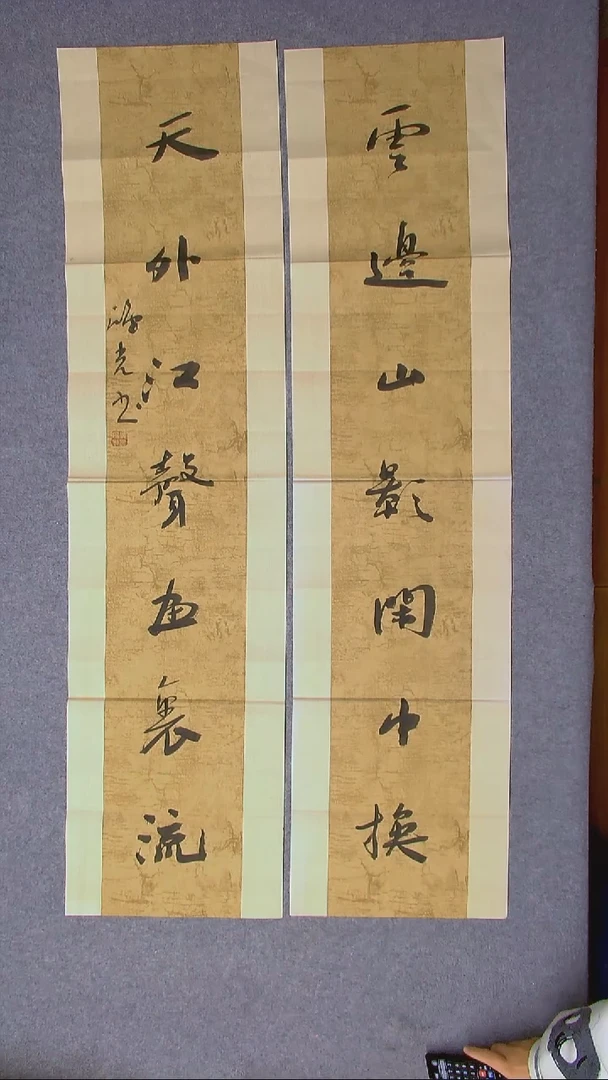 雲邊山影閑中換
天外江聲画裏流
光书